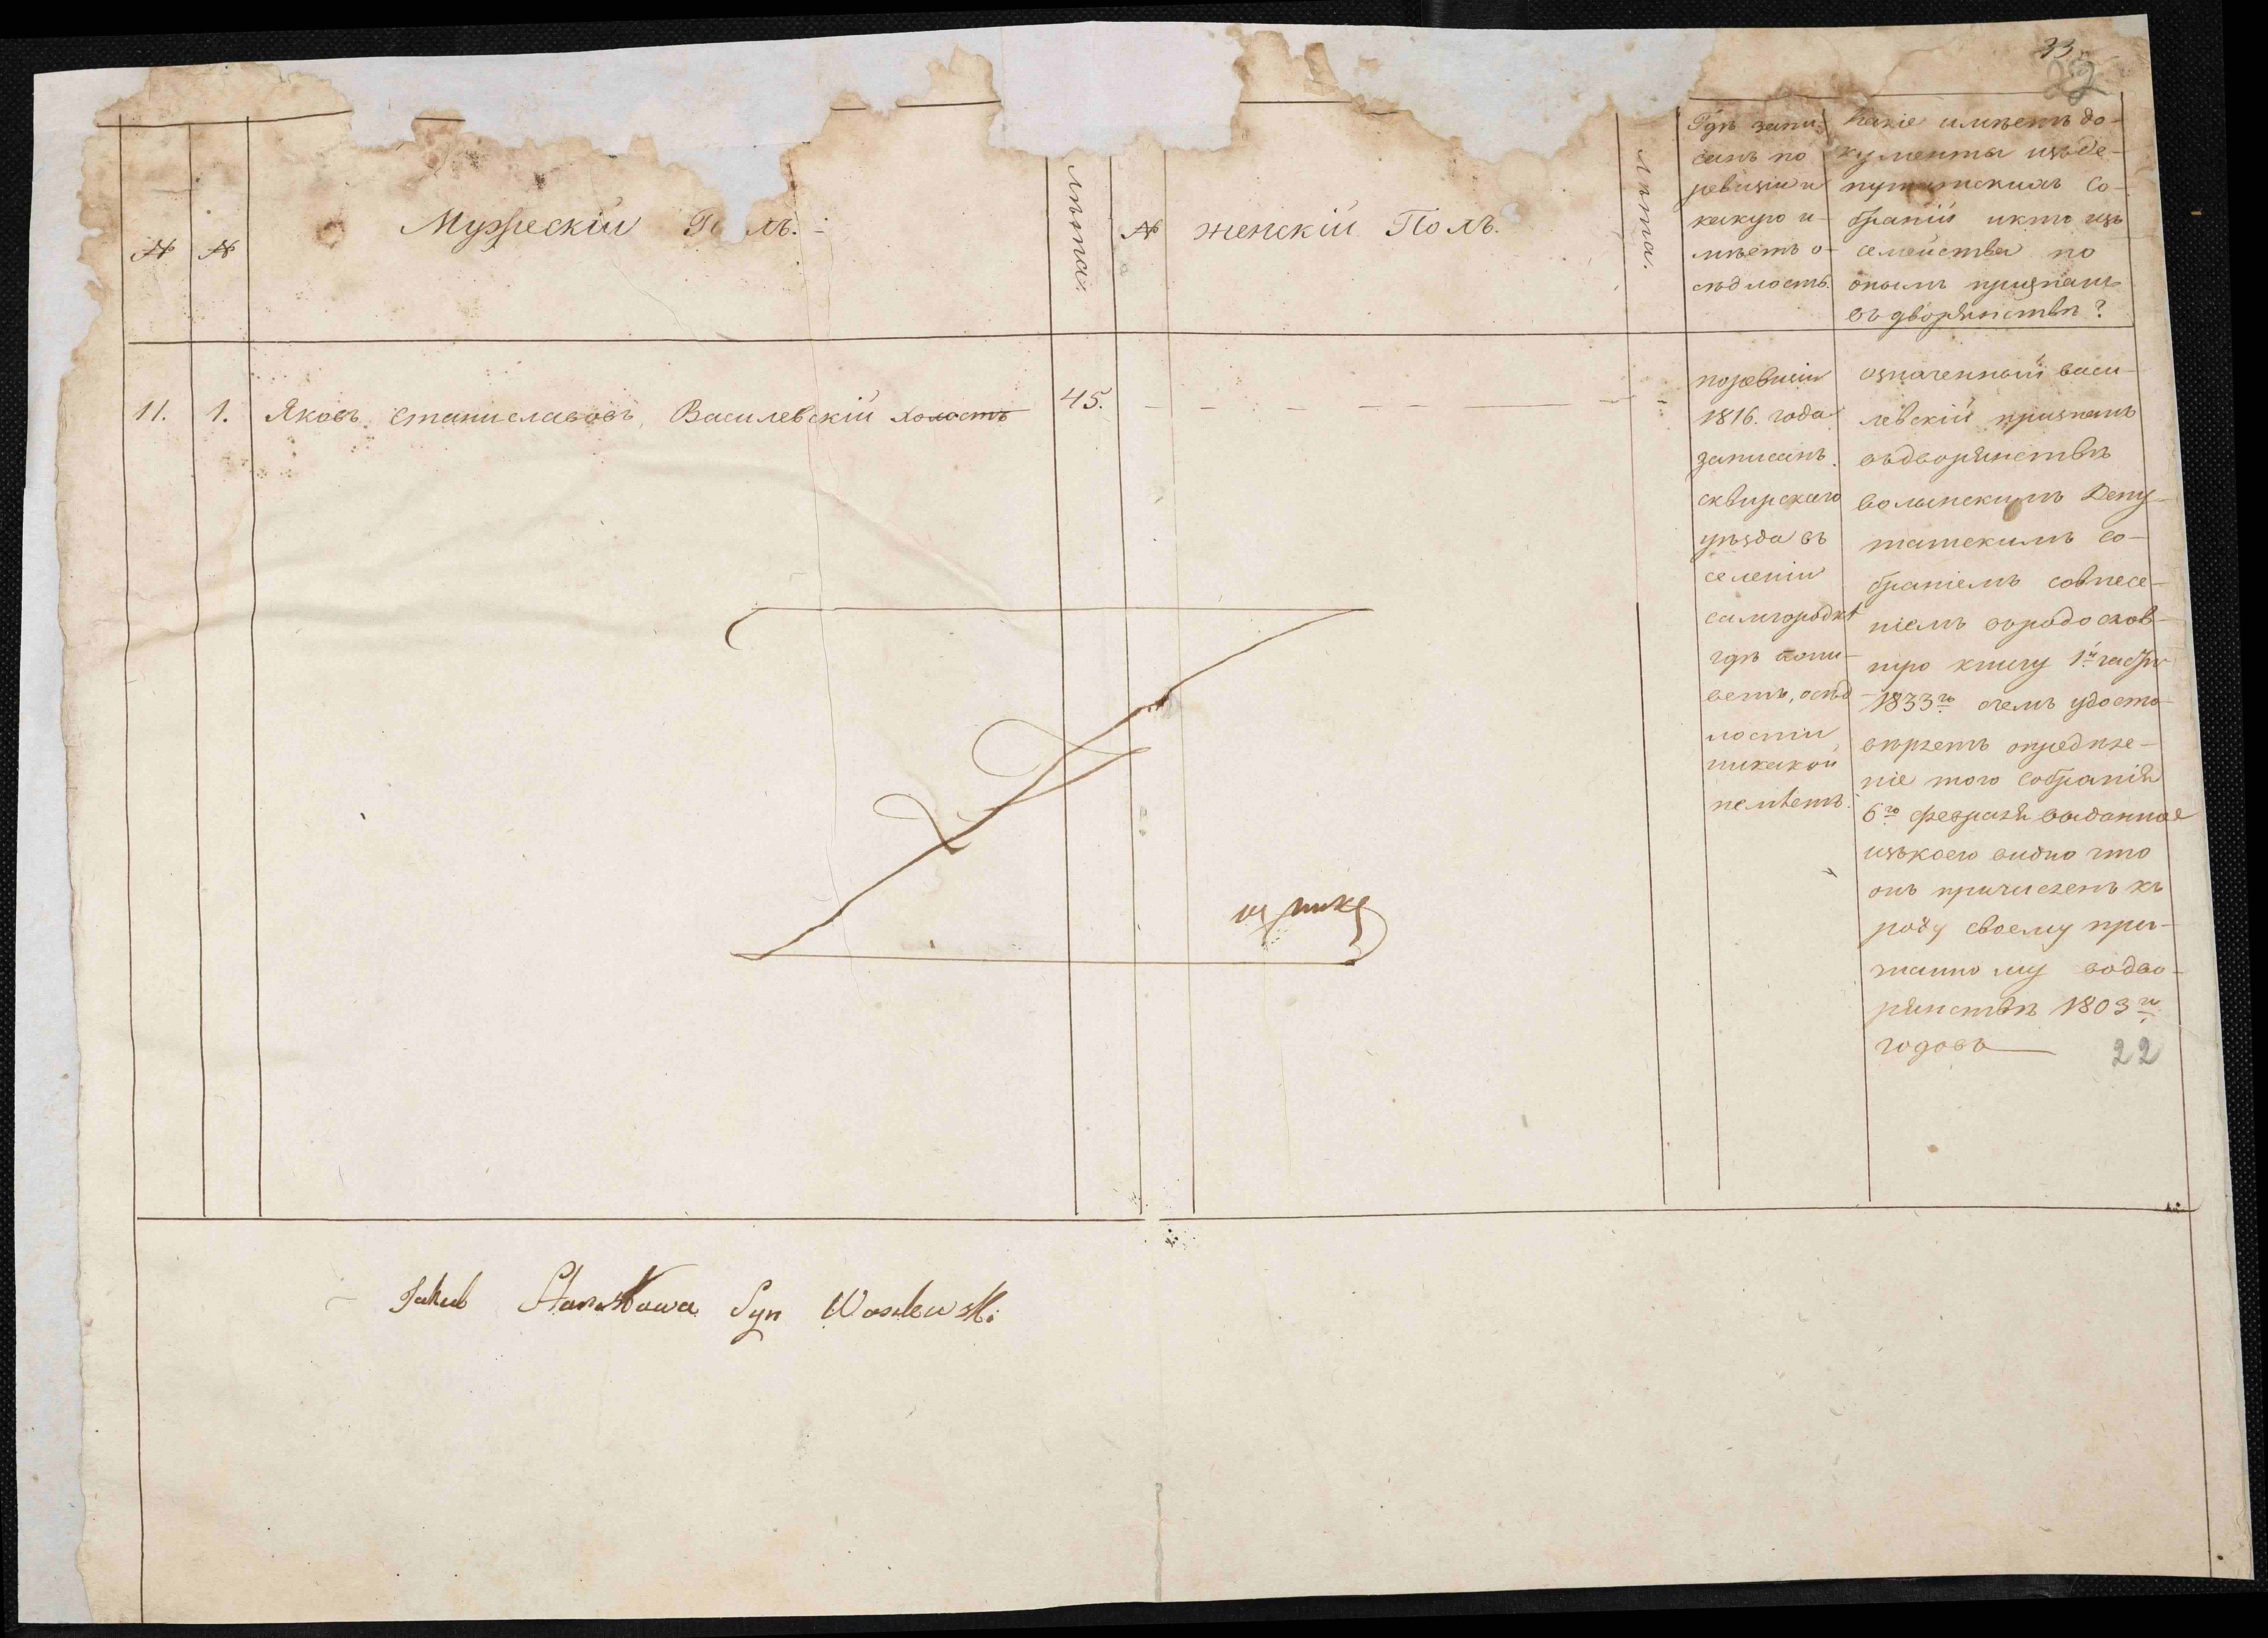 33
22
№
№
Мужескій Полъ.
лѣта.
№
женскій Полъ.
Лѣта.
Гдѣ запи-
санъ по
ревизіи и
какую и-
мѣетъ о-
сѣдлость.
Какіе имѣетъ до-
кументы изъ де-
путатскихъ Со-
браній и кто изъ
семейства по
онымъ признанъ
въ дворянствѣ?
11.
1.
Яковъ Станиславовъ Василевскій холостъ
45.
по ревизіи
1816. года
записанъ
сквирскаго
уѣзда въ
селеніи
самгородкѣ
гдѣ и жи-
ветъ, осѣд-
лости
никакой
неимѣетъ.
означенный Васи-
левскій признанъ
въ дворянствѣ
волынскимъ Депу-
татскимъ со-
браніемъ совнесе-
ніемъ вродослов-
ную книгу 1й части
1833го очемъ удосто-
вѣряетъ опредѣле-
ніе того Собранія
6го февраля выданное
изъ коего видно что
онъ причисленъ къ
роду своему при-
знанному вдво-
рянствѣ 1803го
годовъ
22
Jakub Stanisława Syn Wasilewski